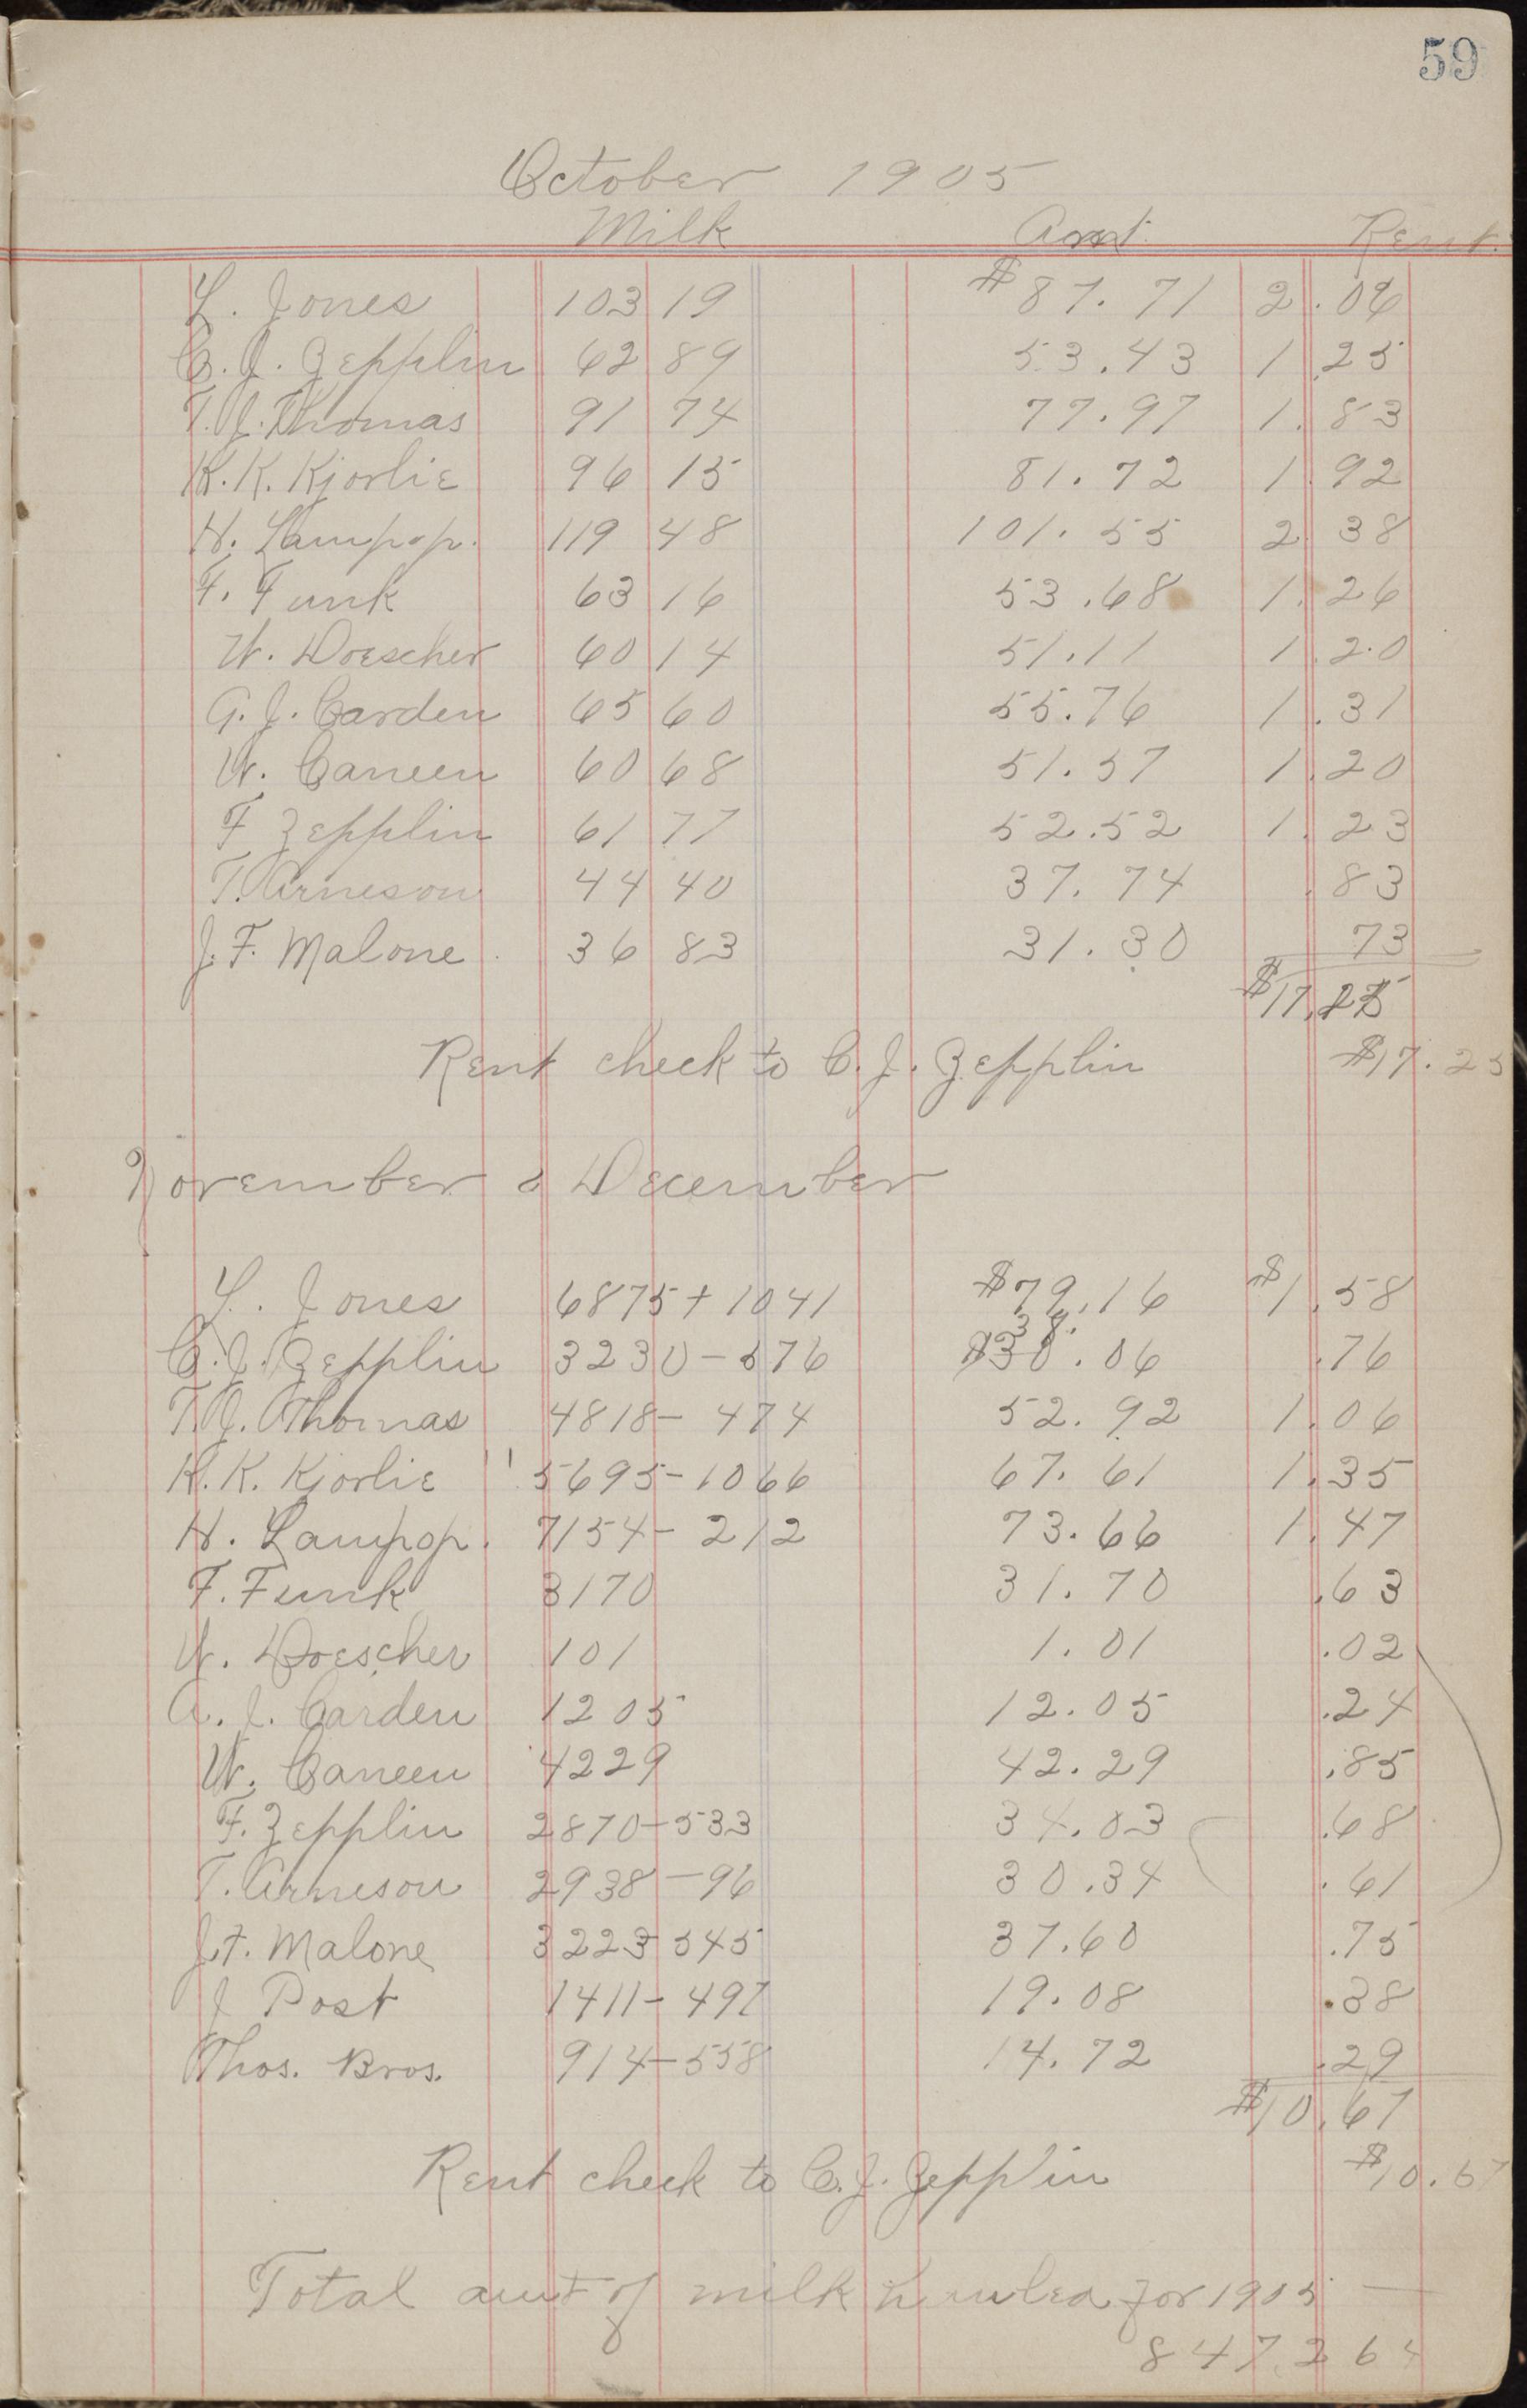 59
October 1905
Milk Amt. Rent.
L. Jones 103 19 $87.71 2.06
C. J. Zepplin 62 89 53.43 1.25
T. J. Thomas 91 74 77.97 1.83
K. K. Kjorlie 96 15 81.72 1.92
H. Lampop. 119 48 101.55 2 38
F. Funk 63 16 53.68 1.26
W. Doescher 60 14 51.11 1.20
A. J. Carden 65 60 55.76 1.31
W. Caneen 60 68 51.57 1.20
F Zepplin 61 77 52.52 1.23
T. Arneson 44 40 37.74 .83
J. F. Malone. 36 83 31.30 73
$17.25
Rent check to C. J. Zepplin $17.25
November & December
L. Jones 6875 + 1041 $79.16 $1.58
C. J. Zepplin 3230 - 576 38.06 .76
T. J. Thomas 4818 - 474 52.92 1.06
K. K. Kjorlie " 5695 - 1066 67.61 1.35
H. Lampop. 7154 - 212 73.66 1.47
F. Funk 3170 31.70 .63
W. Doescher 101 1.01 .02
A. J. Carden 1205 12.05 .24
W. Caneen 4229 42.29 .85
F. Zepplin 2870 - 533 34.03 .68
T. Arneson 2938 - 96 30.34 .61
J. F. Malone 3223 - 545 37.60 .75
J Post 1411 - 497 19.08 .38
Thos. Bros. 914 - 558 14.72 .29
$10.67
Rent check to C. J. Zepplin $10.67
Total amt of milk for 1905 —
847264